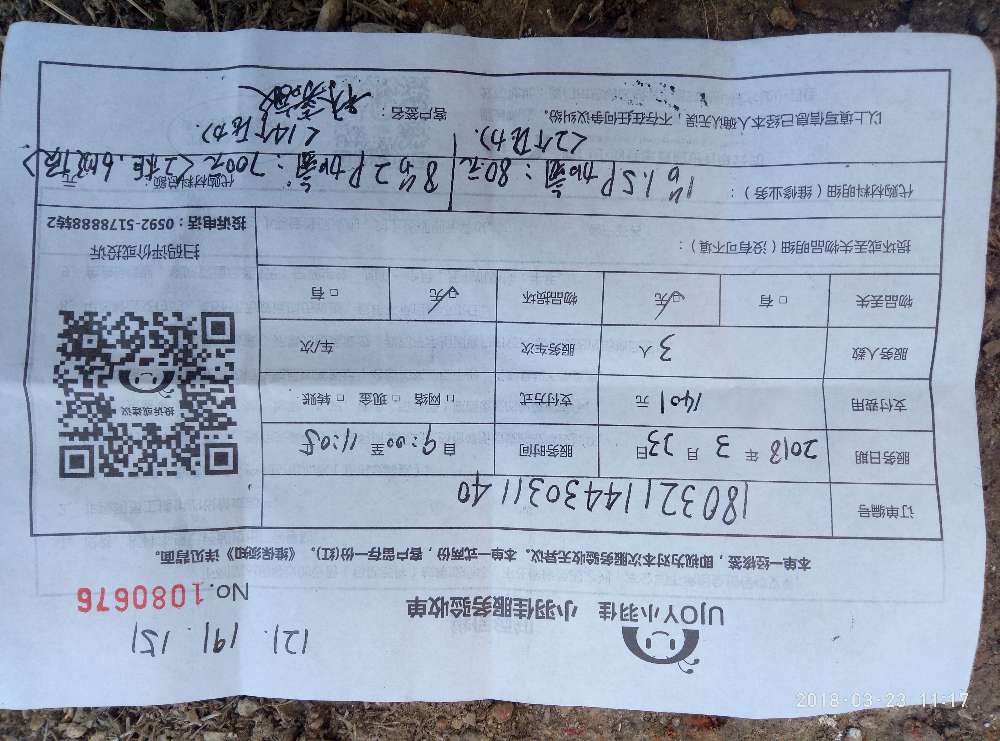 121. 191. 151
UJOY小羽佳 小羽佳服务验收单
NO.1080676
本单一经核签，即视为对本次服务验收无异议。本单一式两份，客户留存一份(红)。《维保须知》详见背面。
订单编号 1803211443031140
服务日期 2018 年 3 月 23 日 服务时间 自 9:00 至 11:05
支付费用 1401 元 支付方式 □ 网络 □ 现金 □ 转账
服务人数 3 人 服务车次 车/次
物品丢失 □ 有 ☑无 物品损坏 ☑无 □ 有
投诉或建议
扫码评价或投诉
投诉电话：0592-5178888转2
损坏或丢失物品明细（没有可不填）：
代购材料明细（维修业务）： 1台1.5P加氟：80元 8台2P加氟：700元<2柜，6吸顶>
代购材料总额： 元
<2个压力). <14个压力).
以上填写信息已经本人确认无误，不存在任何争议纠纷。 客户签名：
2018-03-23 11:17